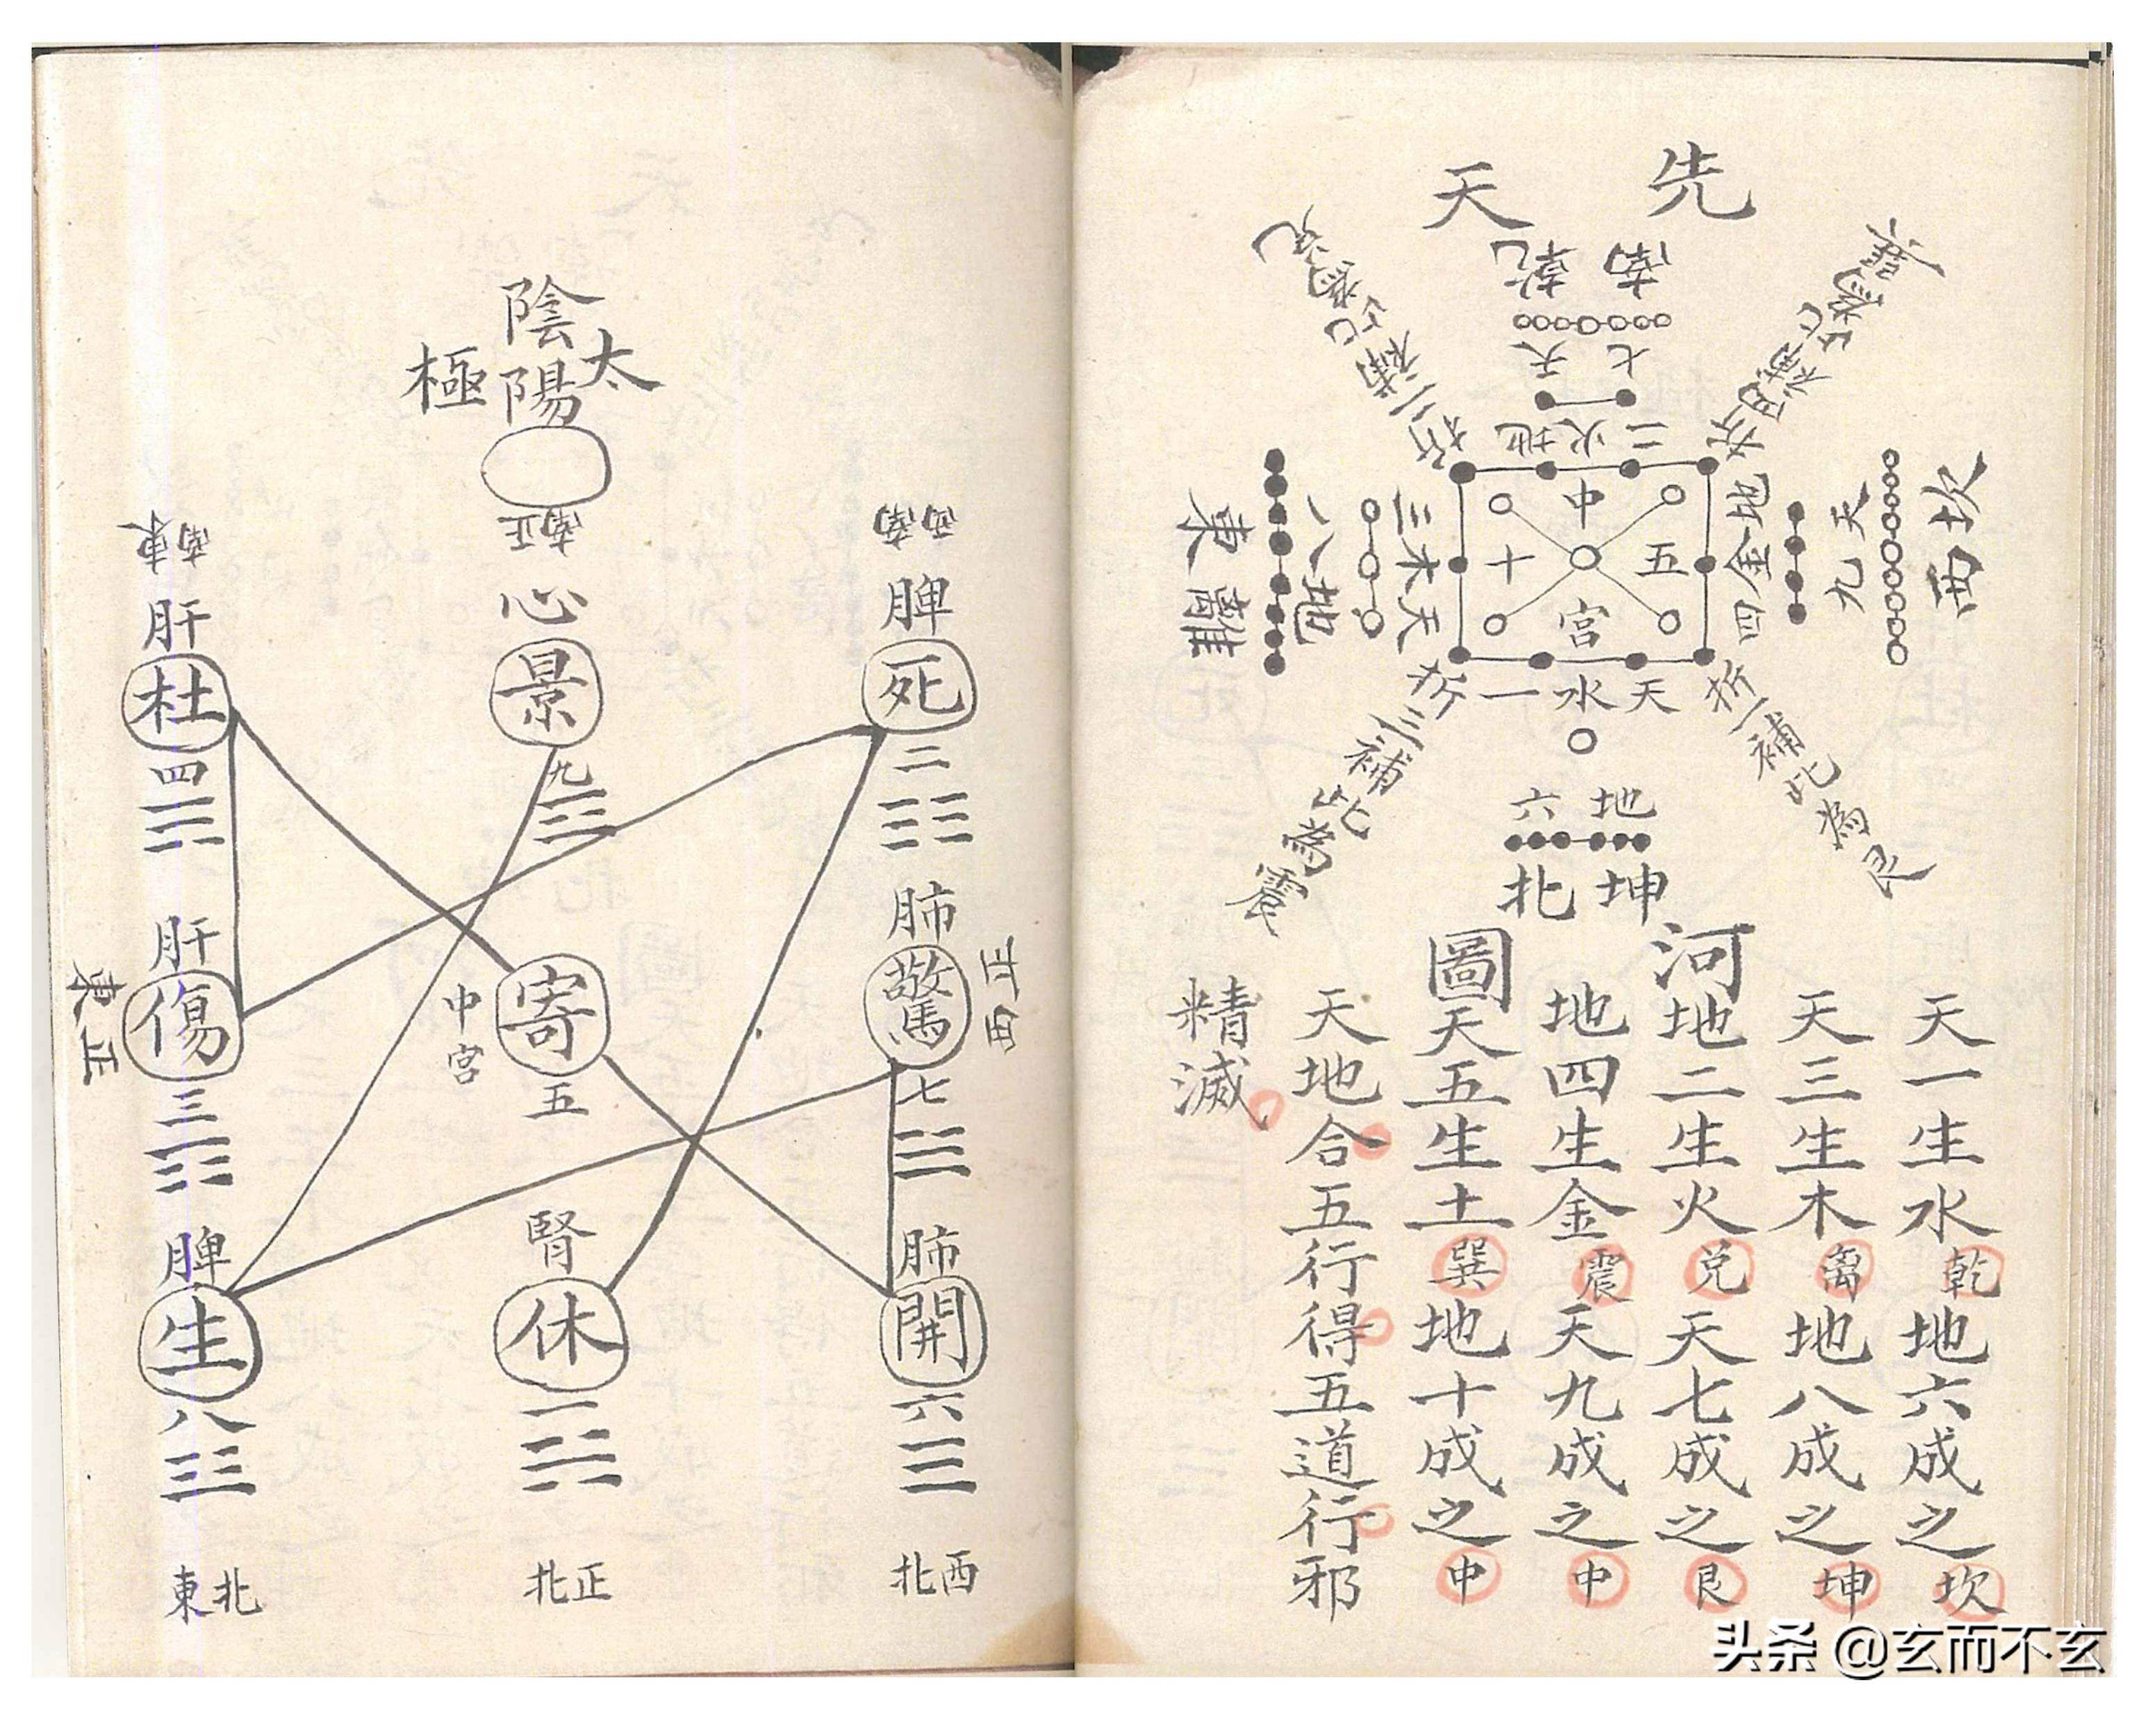 先天
河圖
南乾
七天
二火地
坎西
天九
地金四
中五十宮
三木天
八地
東離
天水一
地六
坤北
拆三補此為震
拆一補此為艮
天一生水乾地六成之坎
天三生木离地八成之坤
地二生火兌天七成之艮
地四生金震天九成之中
天五生土巽地十成之中
天地合五行得五道行邪
精滅
陰陽
太極
正南
心
景
九
西南
脾
死
二
東南
肝
杜
四
正西
肺
驚
七
中宮
寄
五
正東
肝
傷
三
西北
肺
開
六
正北
腎
休
一
北東
脾
生
八
头条 @玄而不玄